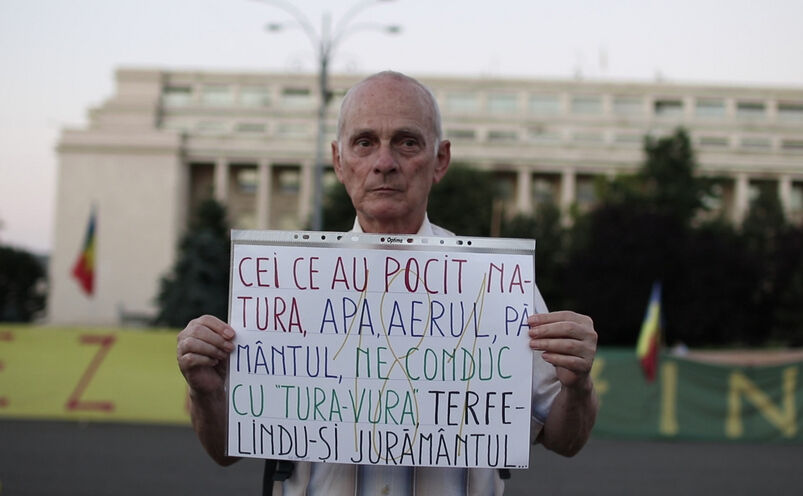 Optima
CEI CE AU POCIT NA-
TURA, APA, AERUL, PĂ
MÂNTUL, NE CONDUC
CU "TURA-VURA" TERFE-
LINDU-ȘI JURĂMÂNTUL...
EZ
FIN